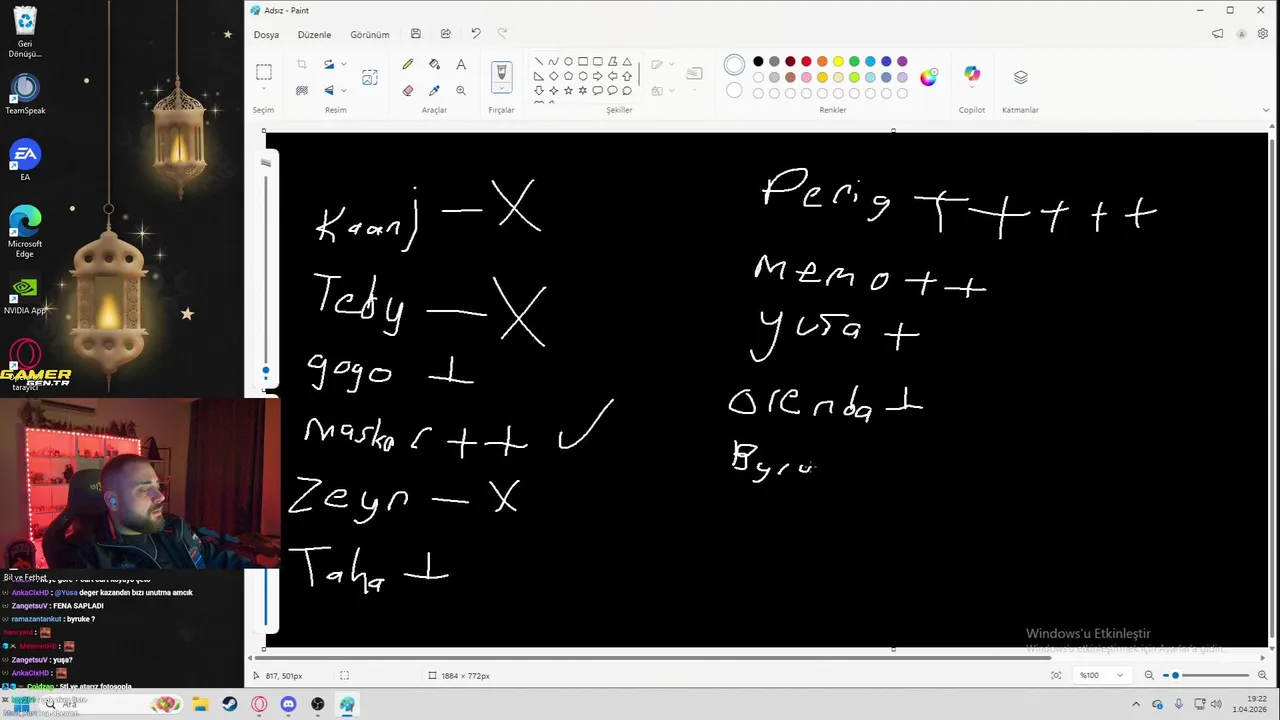 Adsız - Paint
Dosya Düzenle Görünüm
Seçim Resim Araçlar Fırçalar Şekiller Renkler Copilot Katmanlar
Geri Dönüşü...
TeamSpeak
EA
EA
Microsoft Edge
NVIDIA App
tarayici
GAMER
GEN.TR
Kaanj — X
Teby — X
gogo +
Maskor ++ ✓
Zeyn — X
Taha +
Perig +++++
Memo ++
yuşa +
Orenda +
Byru
Bil ve Fethet
AnkaCixHD : @Yusa deger kazandın bızı unutma amcık
ZangetsuV : FENA SAPLADI
ramazantankut : byruke ?
henryard :
MehmetHE :
ZangetsuV : yuşa?
AnkaCixHD :
Coldzao :
Ara
Windows'u Etkinleştir
Windows'u etkinleştirmek için Ayarlar'a gidin.
817, 501px
1884 × 772px
%100
19:22
1.04.2026